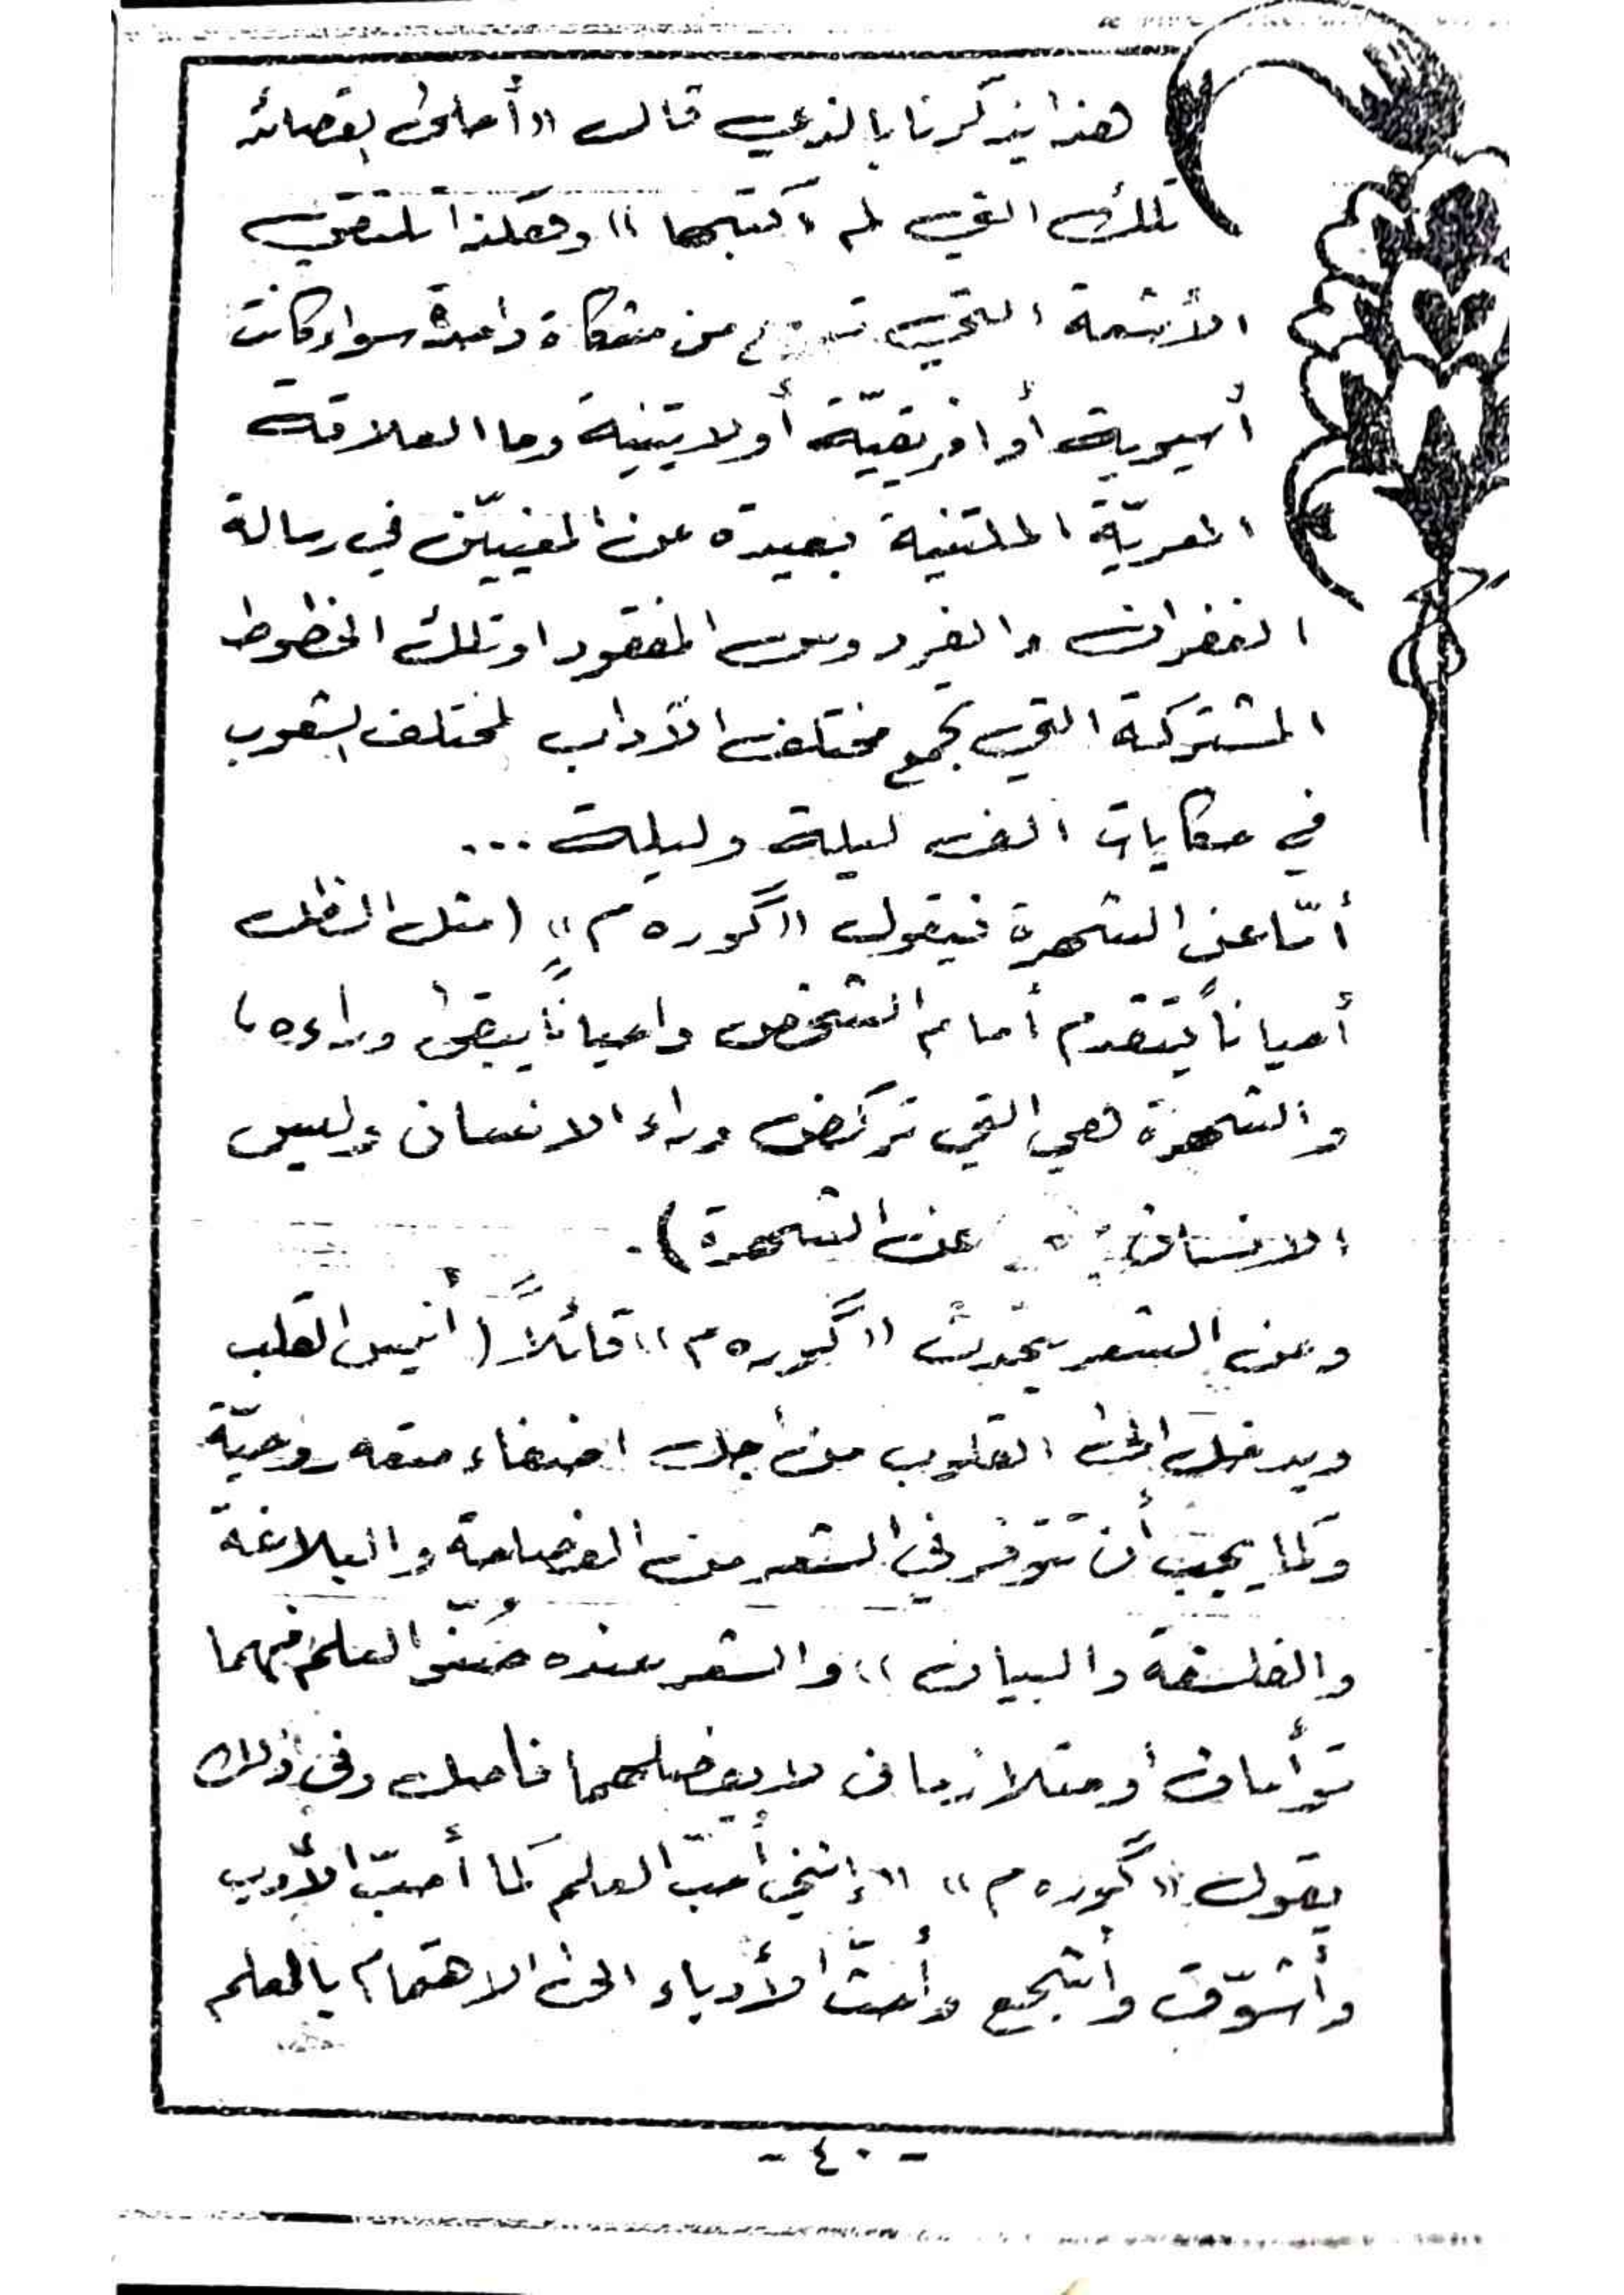 هذا يذكرنا بالذي قال «أحلى القصائد
تلك التي لم اكتبها» وهكذا تلتقي
الأشعة التي من مشكاة واحدة سواء كانت
أسيوية أو افريقيّة أو لاتينية وما العلاقة
المعريّة الملتقية بعيدة عن المغنيّين في رسالة
الغفران والفردوس المفقود او تلك الخطوط
المشتركة التي تجمع مختلف الآداب لمختلف الشعوب
في حكايات الف ليلة وليلة ...
أمّا عن الشهرة فيقول «گوره م» (مثل الظل
أحياناً يتقدم أمام الشخص واحياناً يبقى وراءه،
والشهرة هي التي تركض وراء الانسان وليس
الانسان عن الشهرة).
وعن الشعر يتحدث «گوره م» قائلاً (أنيس القلب
ويدخل الى القلوب من أجل اضفاء متعه روحيّة
وكما يجب أن تتوفر في الشعر من الفصاحة والبلاغة
والفلسفة والبيان» والشعر عنده صُنّو العلم فهما
توأمان أو متلازمان لا يفصلهما فاصل وفى ذلك
يقول «گوره م» «إنني أحبّ العلم كما أحبّ الأدب
وأشوّق وأشجع وأحثّ الأدباء الى الاهتمام بالعلم
- ٤٠ -